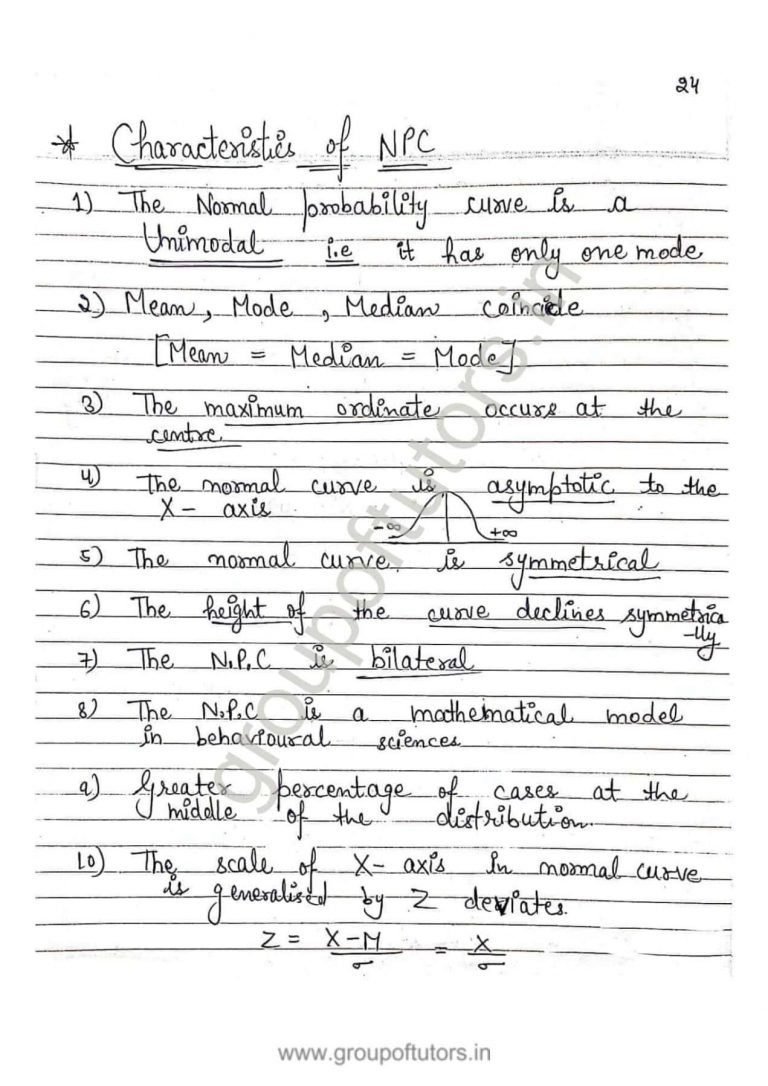 24
* Characteristics of NPC
1) The Normal probability curve is a
Unimodal i.e it has only one mode
2) Mean, Mode, Median coincide
[Mean = Median = Mode]
3) The maximum ordinate occurs at the
centre.
4) The normal curve is asymptotic to the
X- axis
-∞ +∞
5) The normal curve. is symmetrical
6) The height of the curve declines symmetrica
-lly
7) The N.P.C is bilateral
8) The N.P.C is a mathematical model
in behavioural sciences
9) Greater percentage of cases at the
middle of the distribution.
10) The scale of X- axis in normal curve
is generalised by Z deviates.
Z = X-M/σ = X/σ
groupoftutors.in
www.groupoftutors.in